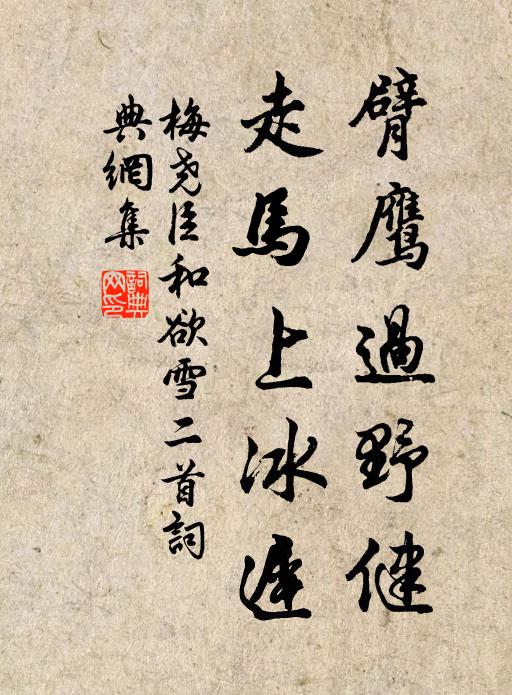 臂鹰過野健
走馬上冰遲
梅尧臣和欲雪二首詞
典網集
詞典
网印